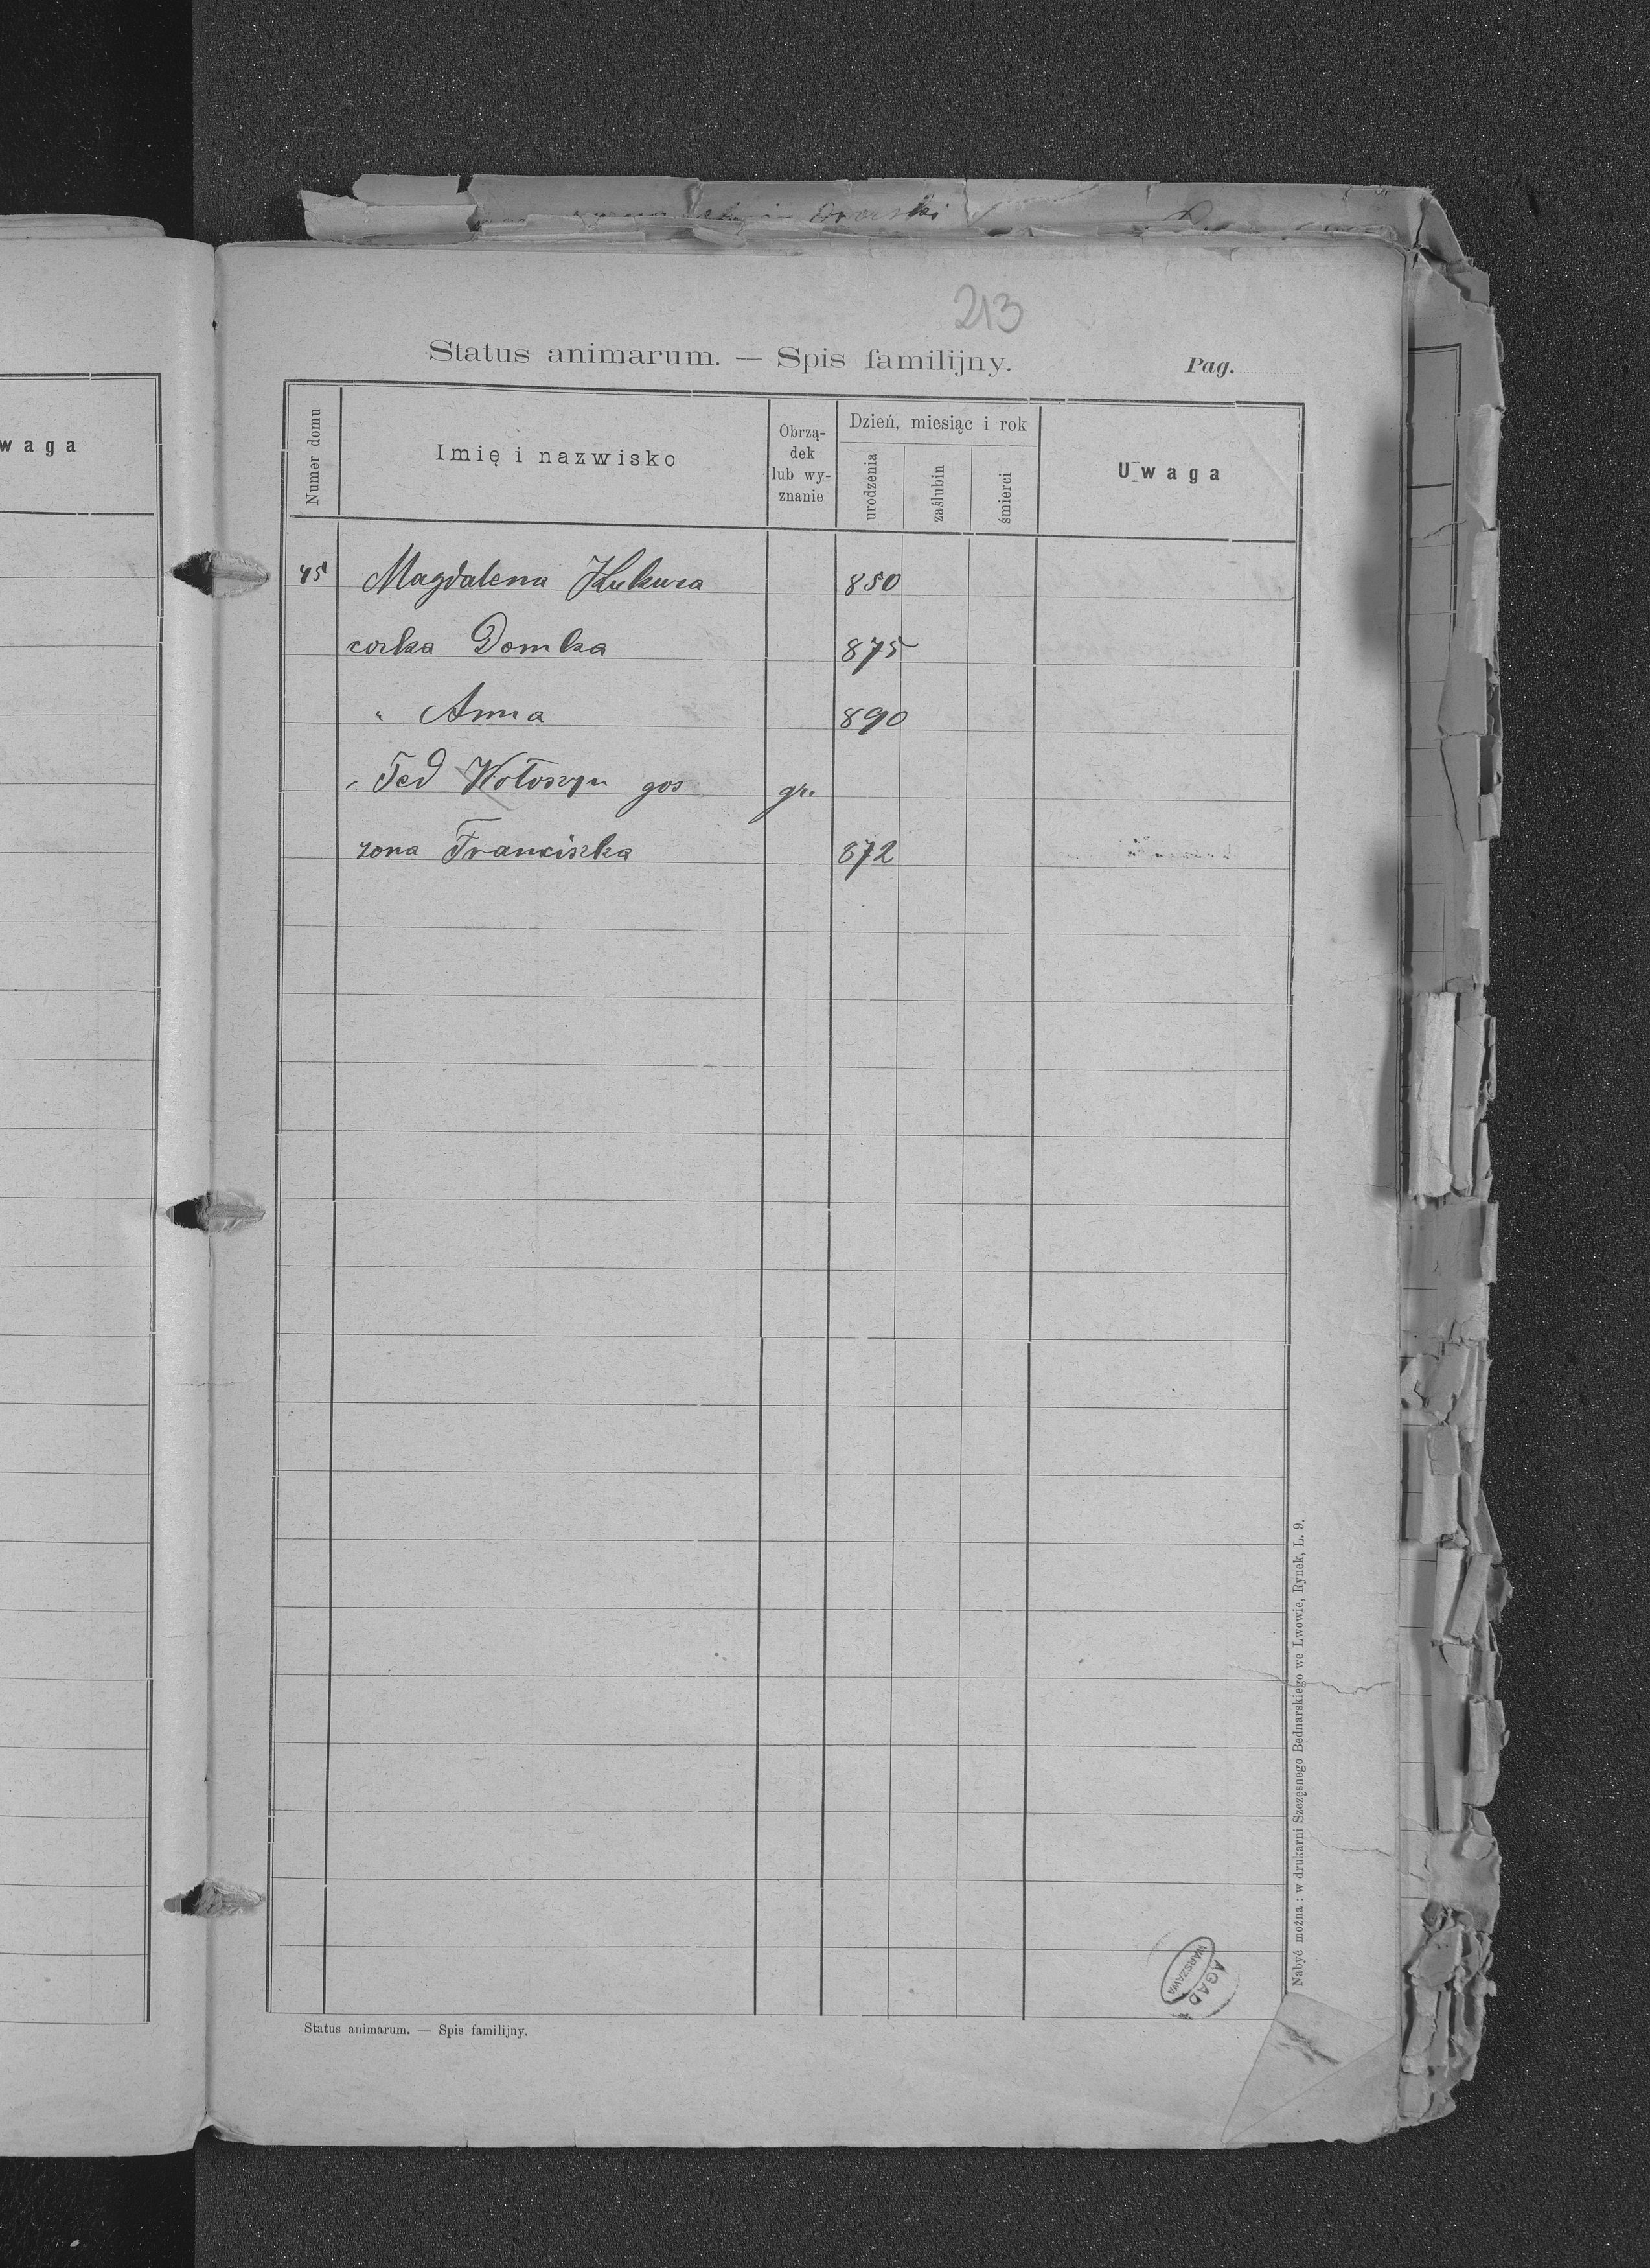 213
Status animarum. — Spis familijny.
Pag.
waga
Numer domu
Imię i nazwisko
Obrzą-
dek
lub wy-
znanie
Dzień, miesiąc i rok
urodzenia
zaślubin
śmierci
Uwaga
45 Magdalena Kukura 850
corka Domka 875
" Anna 890
Fed Wołoszyn gos gr.
zona Franciszka 872
Nabyć można: w drukarni Szczęsnego Bednarskiego we Lwowie, Rynek, L. 9.
AGAD
WARSZAWA
Status animarum. — Spis familijny.